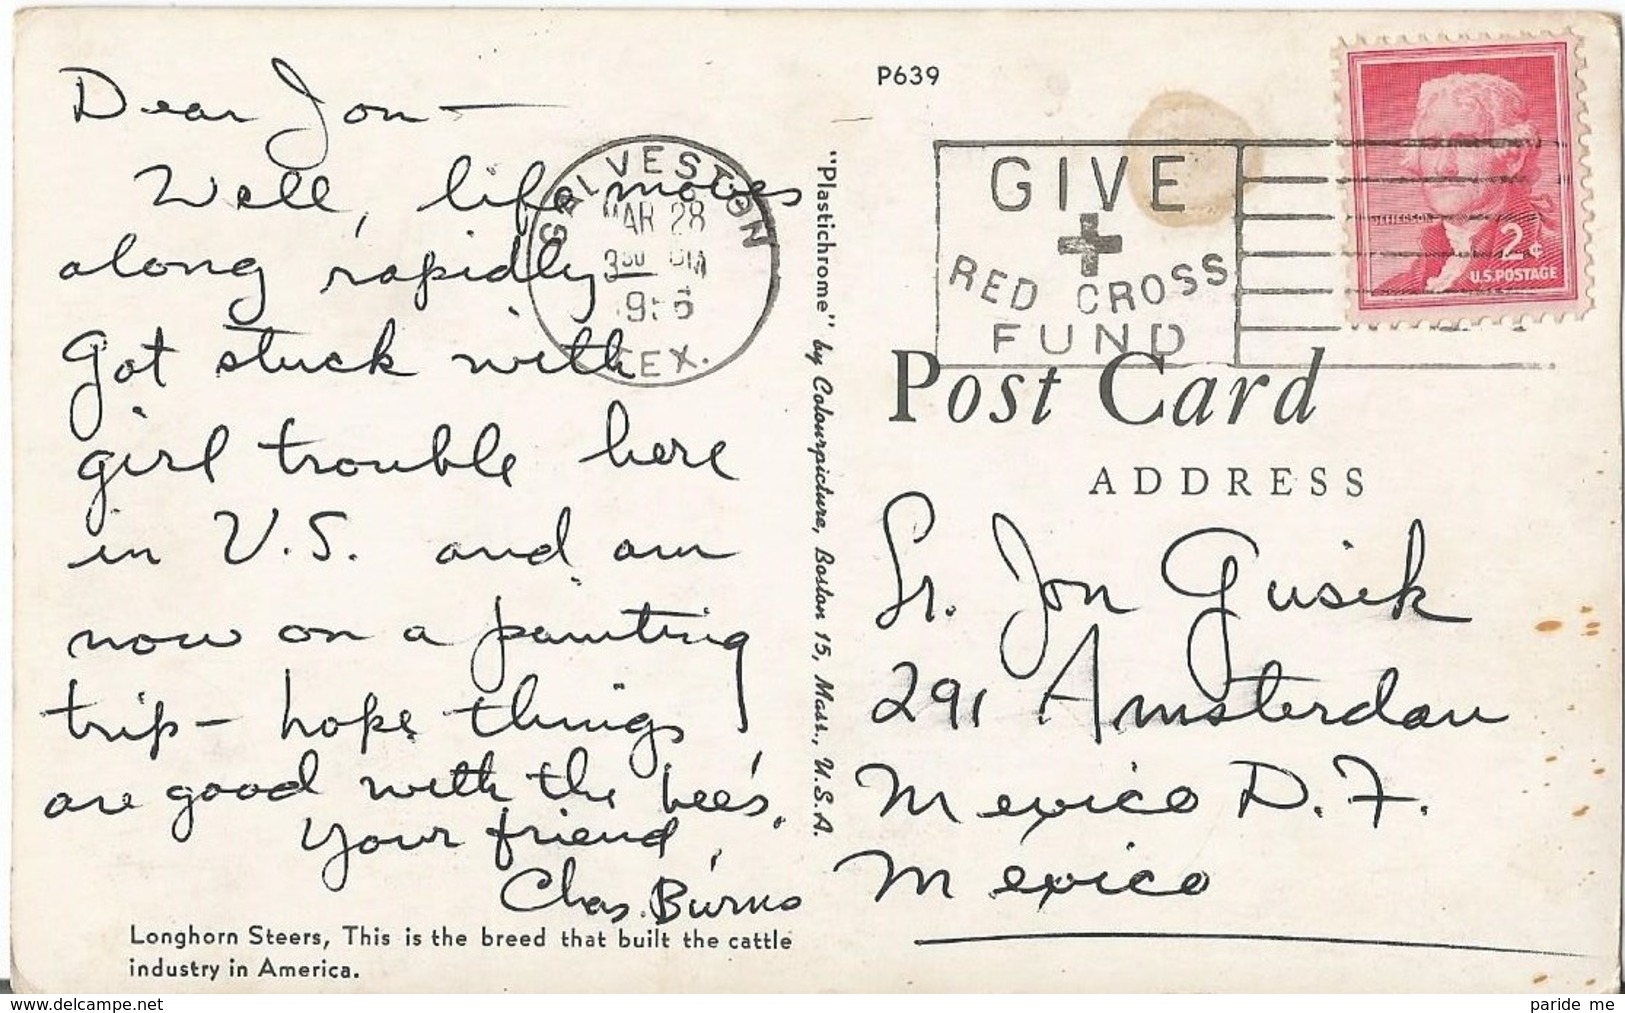 Dear Jon—
Well, life moves
along rapidly—
Got stuck with
girl trouble here
in U.S. and am
now on a painting
trip— hope things
are good with the bee's.
Your friend,
Chas. Burns
Longhorn Steers, This is the breed that built the cattle
industry in America.
GALVESTON
MAR 28
3 30 PM
TEX.
"Plastichrome" by Colourpicture, Boston 15, Mass., U.S.A.
P639
GIVE
RED CROSS
FUND
JEFFERSON
2¢
U.S. POSTAGE
Post Card
ADDRESS
Sr. Jon Gusik
291 Amsterdam
Mexico D.F.
Mexico
www.delcampe.net
paride me